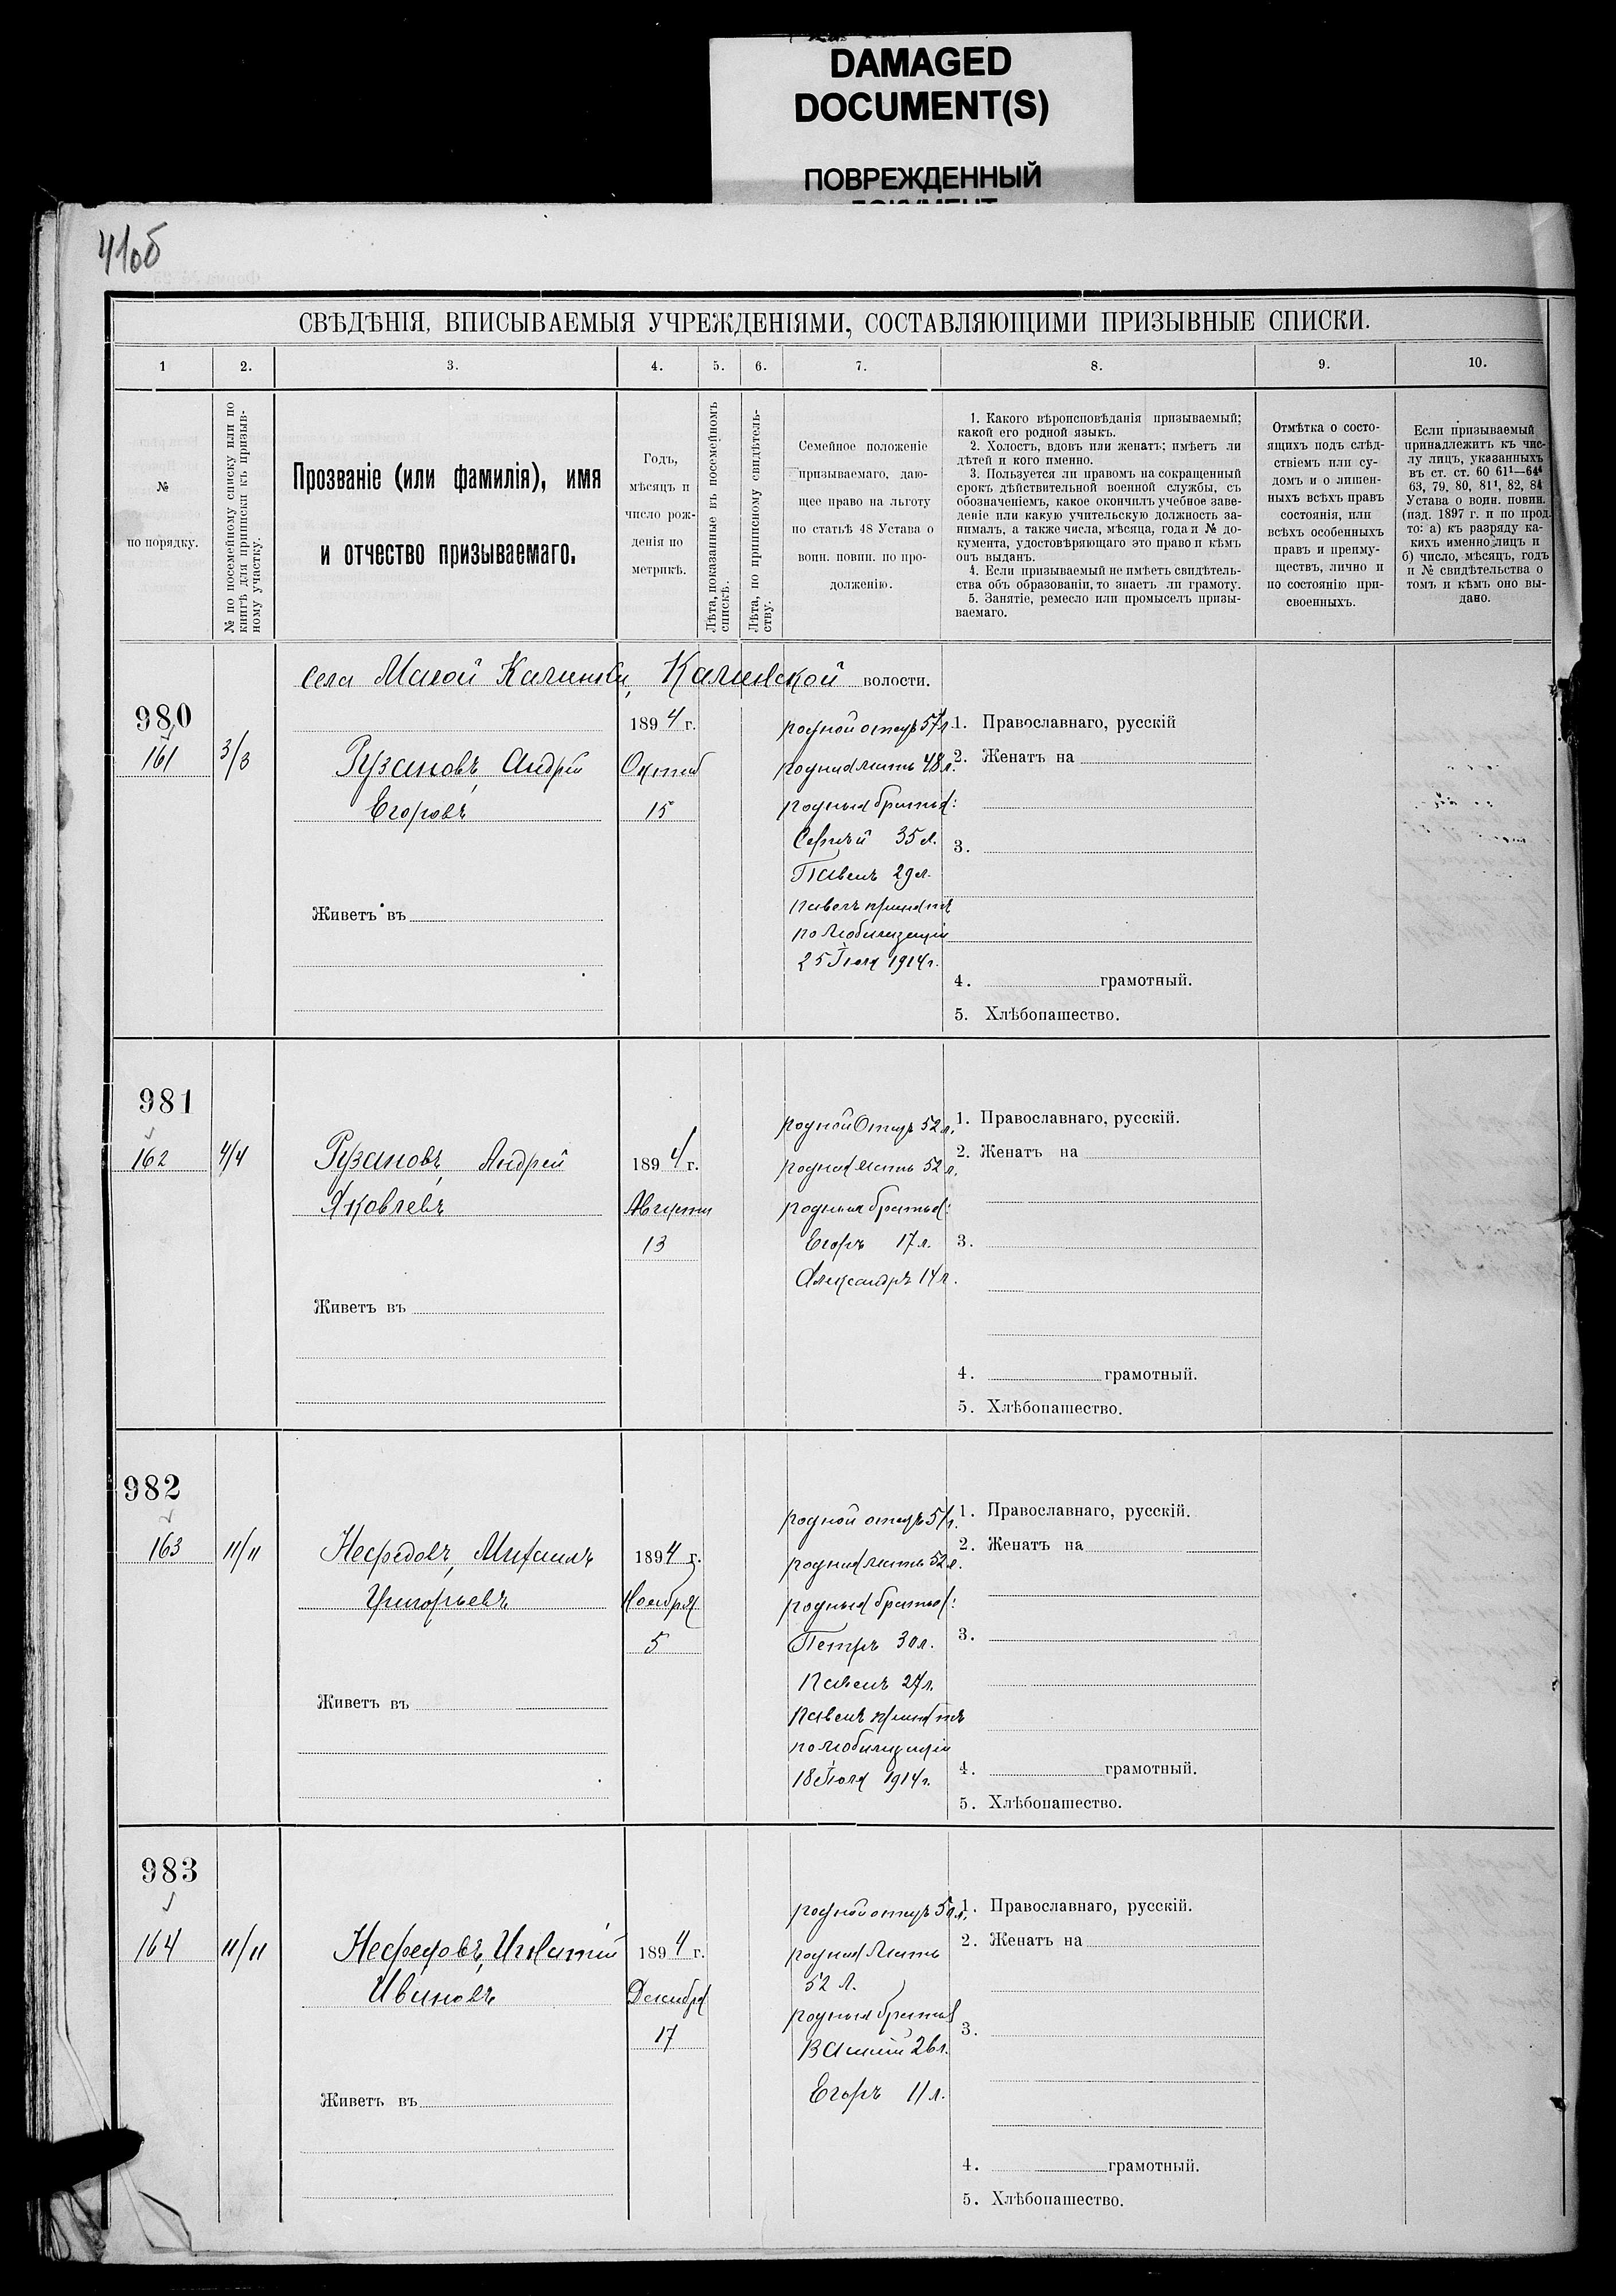 DAMAGED
DOCUMENT(S)
ПОВРЕЖДЕННЫЙ
ДОКУМЕНТ
41об
СВѢДѢНІЯ, ВПИСЫВАЕМЫЯ УЧРЕЖДЕНІЯМИ, СОСТАВЛЯЮЩИМИ ПРИЗЫВНЫЕ СПИСКИ.
1 2. 3. 4. 5. 6. 7. 8. 9. 10.
№
по порядку.
№ по посемейному списку или по
книгѣ для приписки къ призыв-
ному участку.
Прозваніе (или фамилія), имя
и отчество призываемаго.
Годъ,
мѣсяцъ и
число рож-
денія по
метрикѣ.
Лѣта, показанные въ посемейномъ
спискѣ.
Лѣта, по приписному свидѣтель-
ству.
Семейное положеніе
призываемаго, даю-
щее право на льготу
по статьѣ 48 Устава о
воин. повин. по про-
долженію.
1. Какого вѣроисповѣданія призываемый;
какой его родной языкъ.
2. Холостъ, вдовъ или женатъ; имѣетъ ли
дѣтей и кого именно.
3. Пользуется ли правомъ на сокращенный
срокъ дѣйствительной военной службы, съ
обозначеніемъ, какое окончилъ учебное заве-
деніе или какую учительскую должность за-
нималъ, а также числа, мѣсяца, года и № до-
кумента, удостовѣряющаго это право и кѣмъ
онъ выданъ.
4. Если призываемый не имѣетъ свидѣтель-
ства объ образованіи, то знаетъ ли грамоту.
5. Занятіе, ремесло или промыселъ призы-
ваемаго.
Отмѣтка о состо-
ящихъ подъ слѣд-
ствіемъ или су-
домъ и о лишен-
ныхъ всѣхъ правъ
состоянія, или
всѣхъ особенныхъ
правъ и преиму-
ществъ, лично и
по состоянію при-
своенныхъ.
Если призываемый
принадлежитъ къ чис-
лу лицъ, указанныхъ
въ ст. ст. 60 61¹—64⁴
63, 79, 80, 81¹, 82, 84
Устава о воин. повин.
(изд. 1897 г. и по прод.
то: а) къ разряду ка-
кихъ именно лицъ и
б) число, мѣсяцъ, годъ
и № свидѣтельства о
томъ и кѣмъ оно вы-
дано.
села Малой Калинки, волости.
980
161
3/3
Рузановъ, Андрей
Егоровъ
Живетъ въ
1894 г.
Октяб
15
родной отецъ 57 л.
родная мать 48 л.
родныя братья:
Сергѣй 35 л.
Павелъ 29 л.
Павелъ принятъ
по мобилизаціи
25 Іюля 1914 г.
1. Православнаго, русскій
2. Женатъ на
3.
4. грамотный.
5. Хлѣбопашество.
981
162
4/4
Рузановъ, Андрей
Яковлевъ
Живетъ въ
1894 г.
Августа
13
родной отецъ 52 л.
родная мать 52 л.
родныя братья:
Егоръ 17 л.
Александръ 14 л.
1. Православнаго, русскій.
2. Женатъ на
3.
4. грамотный.
5. Хлѣбопашество.
982
163
11/11
Нефедовъ, Михаилъ
Григорьевъ
Живетъ въ
1894 г.
Ноября
5
родной отецъ
родная мать 52 л.
родныя братья:
Петръ 30 л.
Павелъ 27 л.
Павелъ принятъ
по мобилизаціи
18 Іюля 1914 г.
1. Православнаго, русскій.
2. Женатъ на
3.
4. грамотный.
5. Хлѣбопашество.
983
164
11/11
Нефедовъ, Игнатій
Ивановъ
Живетъ въ
1894 г.
Декабря
17
родной отецъ
родная мать
52 л.
родныя братья
26 л.
Егоръ 11 л.
1. Православнаго, русскій.
2. Женатъ на
3.
4. грамотный.
5. Хлѣбопашество.